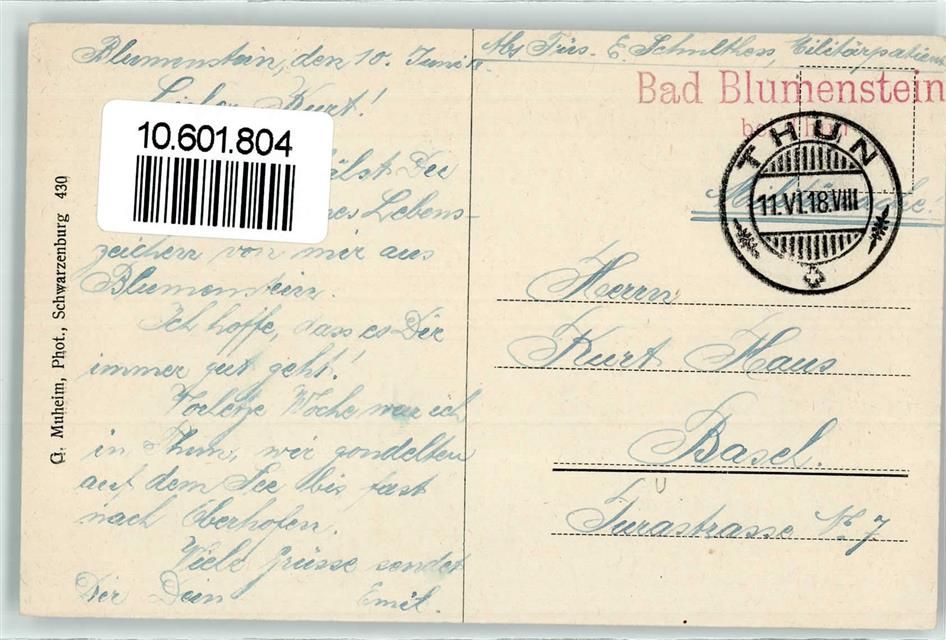 Blumenstein, den 10. Juni
Lieber Kurt!
10.601.804
Lebens-
zeichen von mir aus
Blumenstein.
Ich hoffe, dass es Dir
immer gut geht!
Vorletzte Woche war ich
in Thun, wir gondelten
auf dem See bis fast
nach Oberhofen.
Viele Grüsse sendet
Dir Dein Emil.
G. Muheim, Phot., Schwarzenburg 430
Abs. Füs. E. Schulthess, Militärpatient
Bad Blumenstein
THUN
11.VI.18.VIII
Herrn
Kurt Haus
Basel.
Jurastrasse Nr. 7